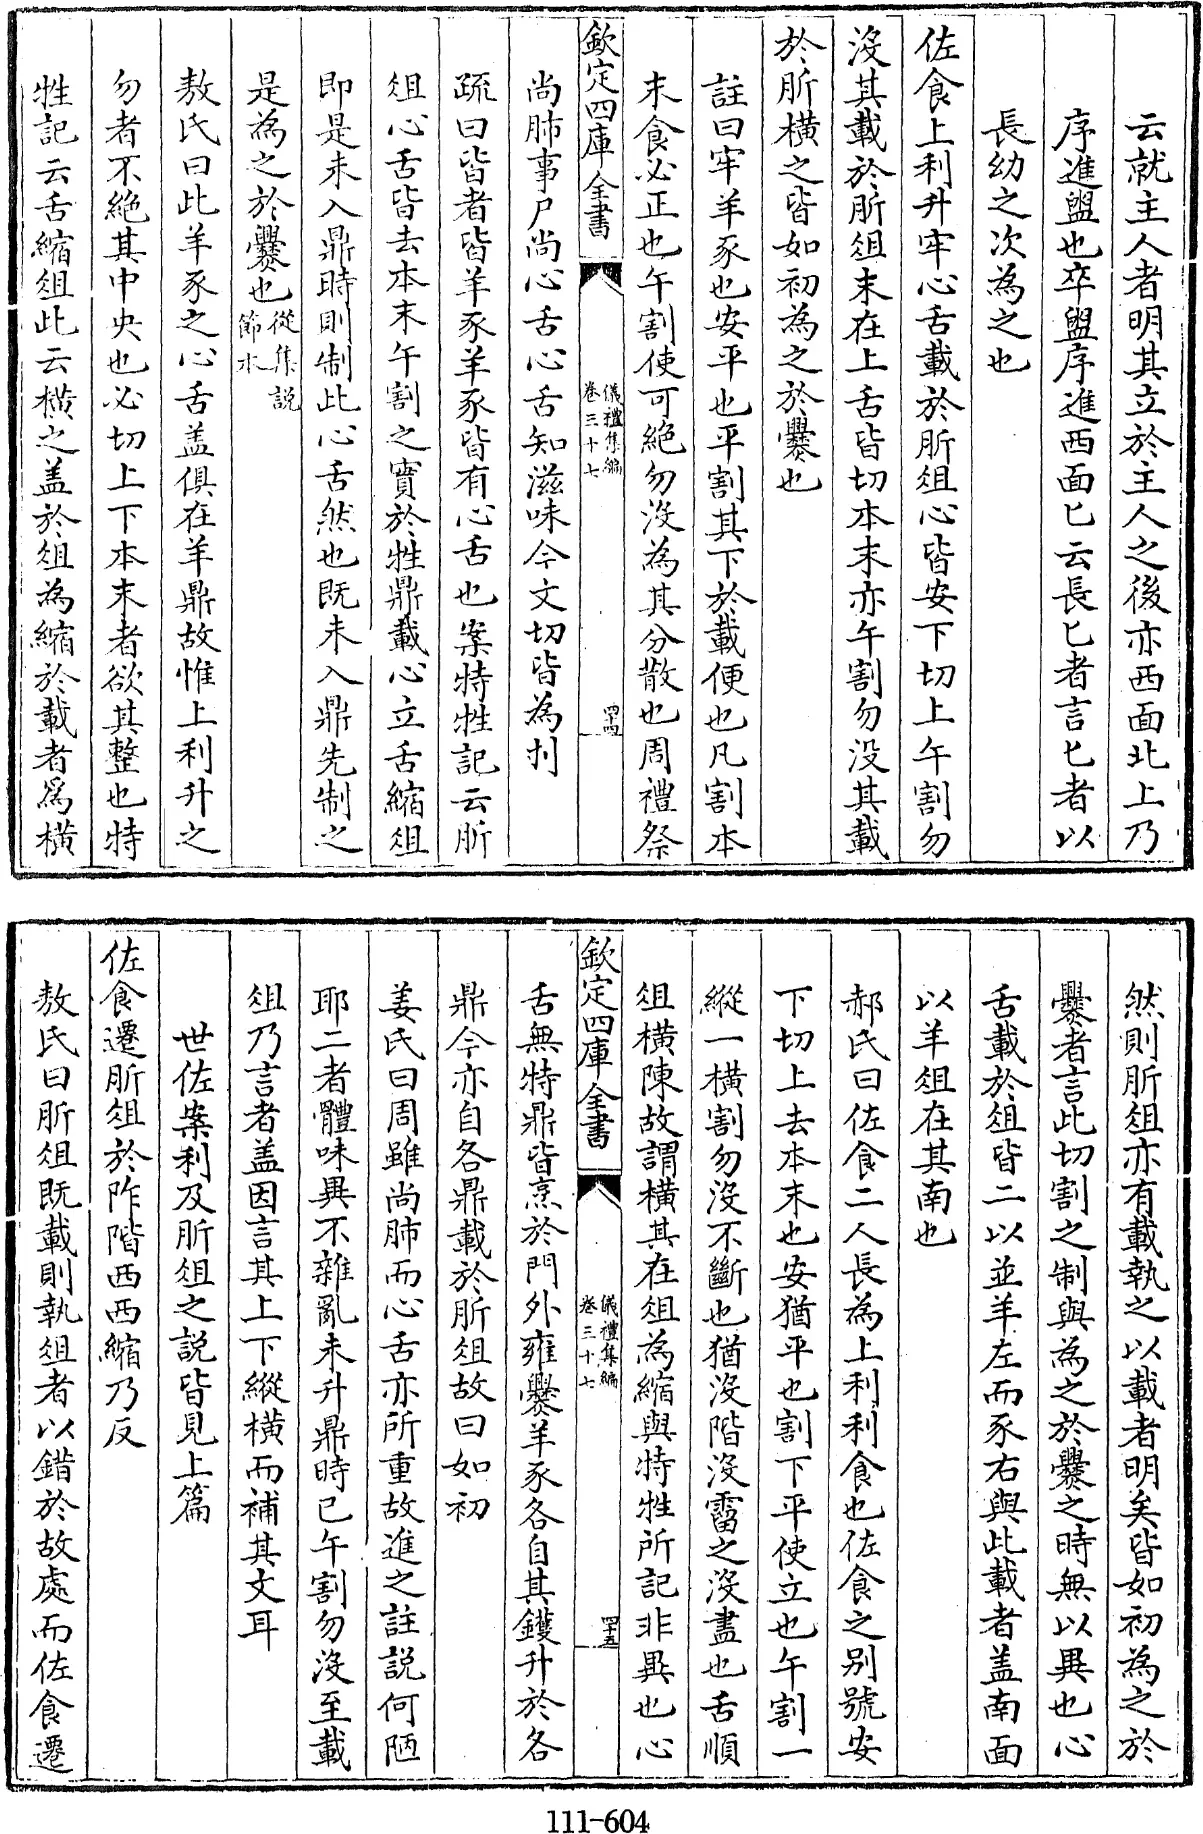 云就主人者明其立於主人之後亦西面北上乃
序進盥也卒盥序進西面匕云長匕者言匕者以
長幼之次為之也
佐食上利升牢心舌載於肵俎心皆安下切上午割勿
沒其載於肵俎末在上舌皆切本末亦午割勿沒其載
於肵橫之皆如初為之於爨也
註曰牢羊豕也安平也平割其下於載便也凡割本
末食必正也午割使可絶勿沒為其分散也周禮祭
欽定四庫全書
儀禮集編
卷三十七
四十四
尚肺事尸尚心舌心舌知滋味今文切皆為刌
疏曰皆者皆羊豕羊豕皆有心舌也案特牲記云肵
俎心舌皆去本末午割之實於牲鼎載心立舌縮俎
即是未入鼎時則制此心舌然也既未入鼎先制之
是為之於爨也從集説
節本
敖氏曰此羊豕之心舌盖俱在羊鼎故惟上利升之
勿者不絶其中央也必切上下本末者欲其整也特
牲記云舌縮俎此云橫之盖於俎為縮於載者爲橫
然則肵俎亦有載執之以載者明矣皆如初為之於
爨者言此切割之制與為之於爨之時無以異也心
舌載於俎皆二以並羊左而豕右與此載者盖南面
以羊俎在其南也
郝氏曰佐食二人長為上利利食也佐食之别號安
下切上去本末也安猶平也割下平使立也午割一
縱一橫割勿沒不斷也猶沒階沒霤之沒盡也舌順
俎橫陳故謂橫其在俎為縮與特牲所記非異也心
欽定四庫全書
儀禮集編
卷三十七
四十五
舌無特鼎皆烹於門外雍爨羊豕各自其鑊升於各
鼎今亦自各鼎載於肵俎故曰如初
姜氏曰周雖尚肺而心舌亦所重故進之註説何陋
耶二者體味異不雜亂未升鼎時已午割勿沒至載
俎乃言者盖因言其上下縱橫而補其文耳
世佐案利及肵俎之説皆見上篇
佐食遷肵俎於阼階西西縮乃反
敖氏曰肵俎既載則執俎者以錯於故處而佐食遷
111-604